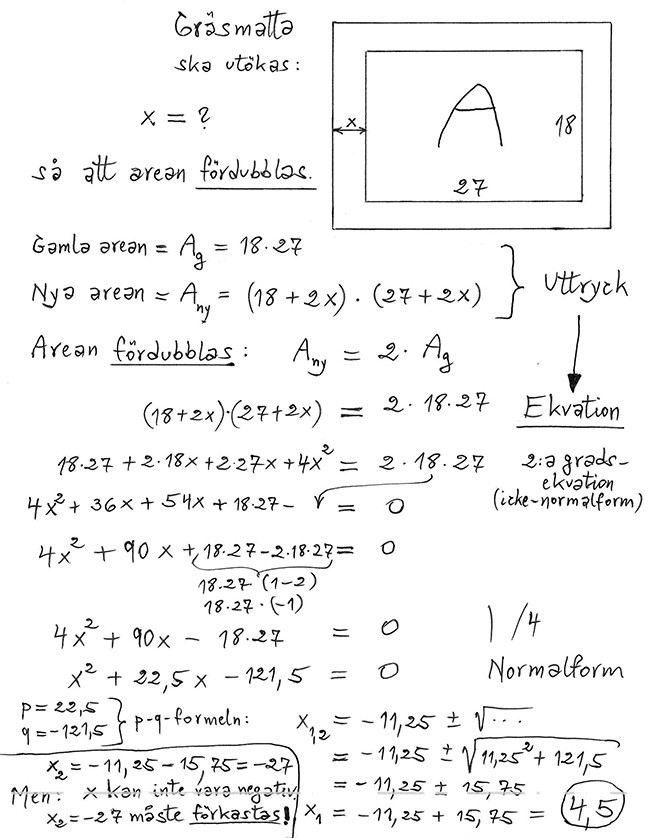 Gräsmatta
ska utökas:
x = ?
så att arean fördubblas.
x
A
18
27
Gamla arean = A_g = 18·27
Nya arean = A_ny = (18 + 2x) · (27 + 2x) } Uttryck
Arean fördubblas: A_ny = 2· A_g
(18+2x)·(27+2x) = 2·18·27 Ekvation
18·27 + 2·18x + 2·27x + 4x² = 2·18·27 2:a grads-
ekvation
(icke-normalform)
4x² + 36x + 54x + 18·27 - = 0
4x² + 90x + 18·27-2·18·27 = 0
18·27·(1-2)
18·27·(-1)
4x² + 90x - 18·27 = 0 | /4
x² + 22,5x - 121,5 = 0 Normalform
p = 22,5
q = -121,5 } p-q-formeln: x_1,2 = -11,25 ± √...
= -11,25 ± √11,25² + 121,5
= -11,25 ± 15,75
x_1 = -11,25 + 15,75 = 4,5
x_2 = -11,25 - 15,75 = -27
Men: x kan inte vara negativ
x_2 = -27 måste förkastas!